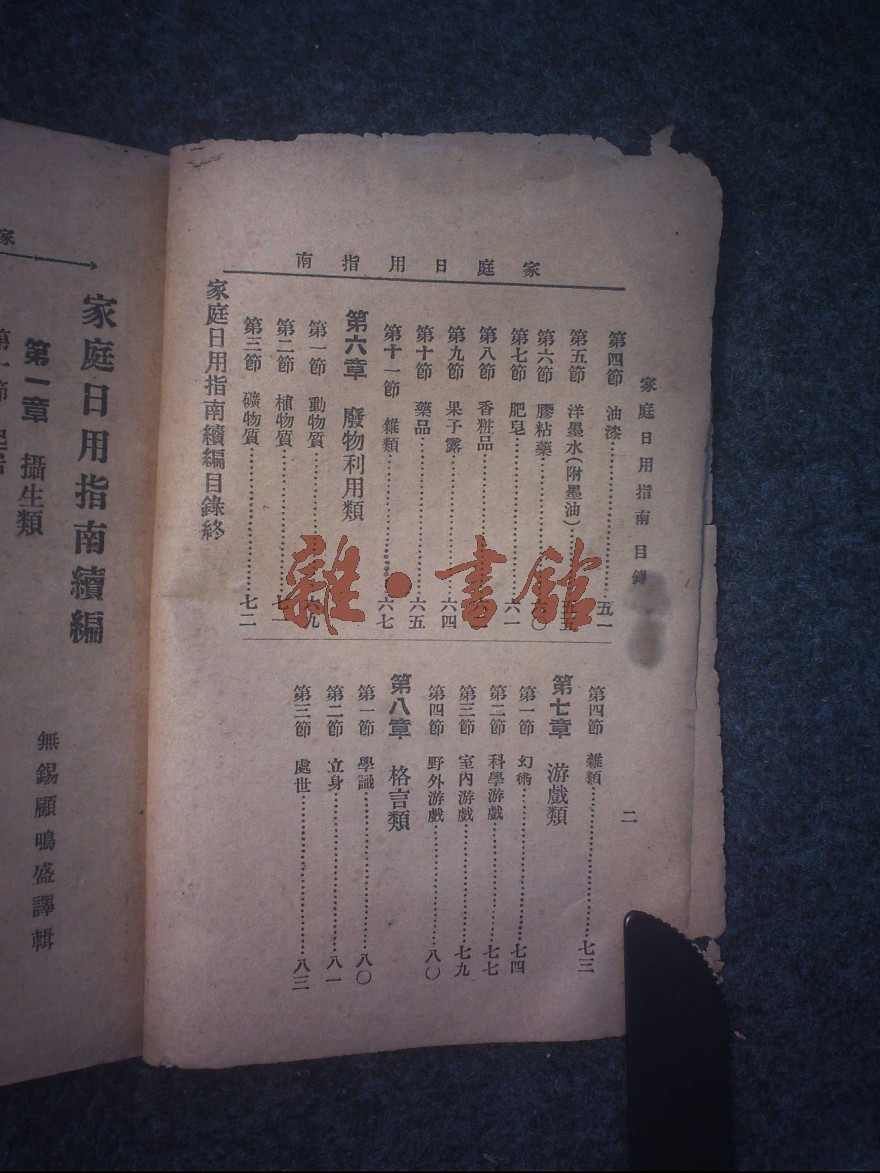 家庭日用指南
家庭日用指南 目錄
二
第四節 油漆…………五一
第五節 洋墨水（附墨油）…………五五
第六節 膠粘藥…………六〇
第七節 肥皂…………六一
第八節 香粧品…………
第九節 果子露…………六四
第十節 藥品…………六五
第十一節 雜類…………六七
第六章 廢物利用類
第一節 動物質…………六九
第二節 植物質…………七一
第三節 礦物質…………七二
家庭日用指南續編目錄終
第四節 雜類…………七三
第七章 游戲類
第一節 幻術…………七四
第二節 科學游戲…………七七
第三節 室內游戲…………七九
第四節 野外游戲…………八〇
第八章 格言類
第一節 學識…………八〇
第二節 立身…………八一
第三節 處世…………八三
雜·書館
家
家庭日用指南續編
無錫顧鳴盛譯輯
第一章 攝生類
第一節 起居